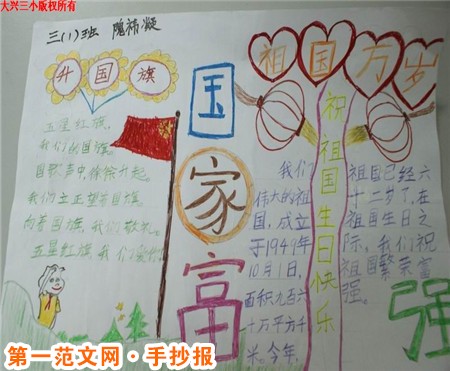 大兴三小版权所有
三(1)班 隗祎凝
升国旗
五星红旗,
我们的国旗,
国歌声中徐徐升起,
我们立正望着国旗,
向着国旗,我们敬礼。
五星红旗,我们
国
家
富
强
祖国万岁
祝祖国生日快乐
我们
伟大的祖
国,成立
于1949年
10月1日,
面积九百六
十万平方千
米。今年,
祖国已经六
十二岁了,在
祖国生日之
际,我们祝
祖国繁荣富
强。
第一范文网·手抄报